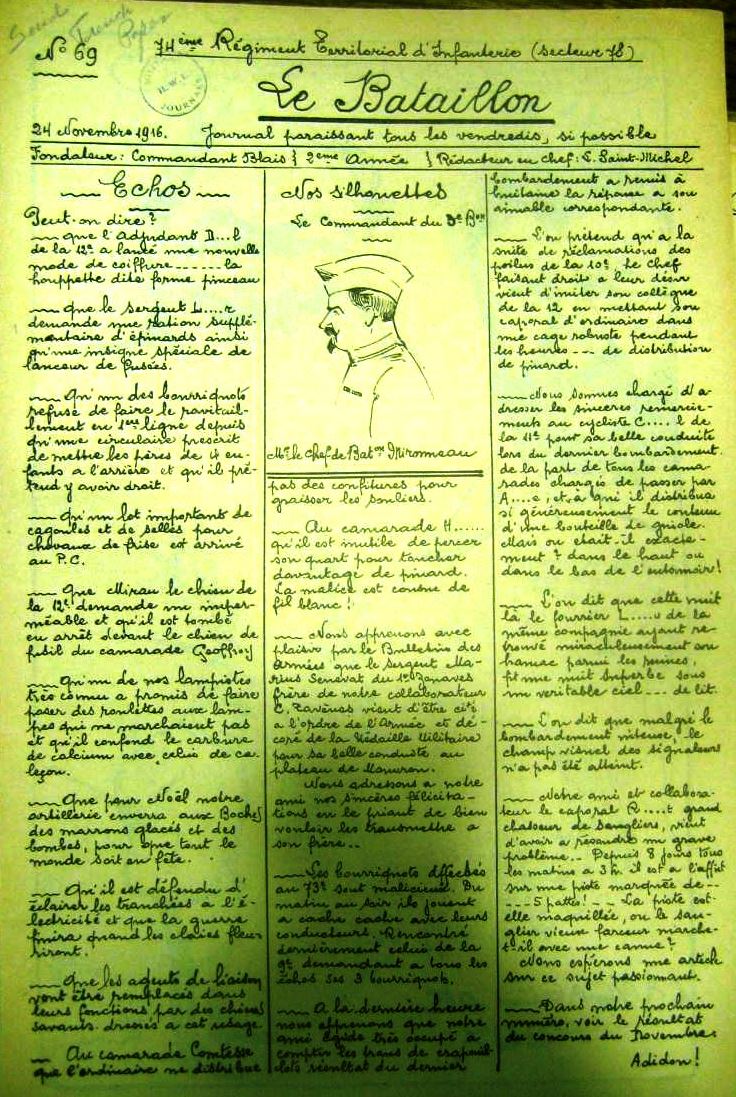 Send
French
Paper
No 69
74ème Régiment Territorial d'Infanterie (secteur 78)
H.W.L.
JOURNALS
Le Bataillon
24 Novembre 1916. Journal paraissant tous les vendredis, si possible
Fondateur: Commandant Blais } 2ème Armée } Rédacteur en chef: C. Saint-Michel
Echos
Peut-on dire?
que l'Adjudant D...l
de la 12e a lancé une nouvelle
mode de coiffure ------ la
houppette dite forme pinceau
Que le sergent L...r
demande une ration supplé-
mentaire d'épinards ainsi
qu'une insigne spéciale de
lanceur de fusées.
Qu'un des bourriquots
refuse de faire le ravitail-
lement en 1ère ligne depuis
qu'une circulaire prescrit
de mettre les pères de 4 en-
fants a l'arrière et qu'il pré-
tend y avoir droit.
Qu'un lot important de
cagoules et de selles pour
chevaux de frise est arrivé
au P.C.
Que Mirau le chien de
la 12e demande un imper-
méable et qu'il est tombé
en arrêt devant le chien de
fusil du camarade Geoffroy
Qu'un de nos lampistes
très connu a promis de faire
poser des roulettes aux lam-
pes qui ne marchaient pas
et qu'il confond le carbure
de calcium avec celui de ca-
leçon.
Que pour Noël notre
artillerie enverra aux Boches
des marrons glacés et des
bombes, pour que tout le
monde soit en fête.
Qu'il est défendu d'
éclairer les tranchées a l'é-
lectricité et que la guerre
finira quand les claies fleu-
riront.
Que les agents de liaison
vont être remplacés dans
leurs fonctions par des chiens
savants dressés a cet usage.
Au camarade Comtesse
que l'ordinaire ne distribue
Nos silhouettes
Le Commandant du 3e Bon
Mr le Chef de Baton Mironneau
pas des confitures pour
graisser les souliers.
Au camarade H......
qu'il est inutile de percer
son quart pour toucher
davantage de pinard.
La malice est cousue de
fil blanc!
Nous apprenons avec
plaisir par le Bulletin des
Armées que le sergent Ma-
rius Senevat du 1er Zouaves
frère de notre collaborateur
C. Tavénas vient d'être cité
a l'ordre de l'Armée et dé-
coré de la Médaille Militaire
pour sa belle conduite au
plateau de
Nous adressons a notre
ami nos sincères félicita-
tions en le priant de bien
vouloir les transmettre a
son frère..
Les bourriquots affectés
au 73e sont malicieux. Du
matin au soir ils jouent
a cache cache avec leurs
conducteurs. Rencontré
dernièrement celui de la
9e demandant a tous les
échos ses 3 bourriquots.
A la dernière heure
nous apprenons que notre
ami très occupé à
compter les trous de crapouil-
lots résultat du dernier
bombardement a remis à
huitaine la réponse a son
aimable correspondante.
L'on prétend qu'a la
suite de réclamations des
poilus de la 10e, le Chef
faisant droit a leur désir
vient d'imiter son collègue
de la 12 en mettant son
caporal d'ordinaire dans
une cage robuste pendant
les heures --- de distribution
de pinard.
Nous sommes chargé d'a-
dresser les sincères remercie-
ments au cycliste C....l de
la 11e pour sa belle conduite
lors du dernier bombardement.
de la part de tous les cama-
rades chargés de passer par
A....e, et à qui il distribua
si généreusement le contenu
d'une bouteille de gniole.
Mais ou était-il exacte-
ment? dans le haut ou
dans le bas de l'entonnoir!
L'on dit que cette nuit
là le fourrier L....u de la
même compagnie ayant re-
trouvé miraculeusement son
hamac parmi les ruines,
fit une nuit superbe sous
un veritable ciel --- de lit.
L'on dit que malgré le
bombardement, le
champ visuel des signaleurs
n'a pas été atteint.
Notre ami et collabora-
teur le caporal R....t grand
chasseur de sangliers, vient
d'avoir a résoudre un grave
problème.. Depuis 8 jours tous
les matins a 3 h. il est a l'affût
sur une piste marquée de --
---- 5 pattes! -- La piste est-
elle maquillée, ou le san-
glier vieux farceur marche-
t-il avec une canne?
Nous espérons une article
sur ce sujet passionnant.
Dans notre prochain
numéro, voir le résultat
du concours du Novembre.
Adidon!